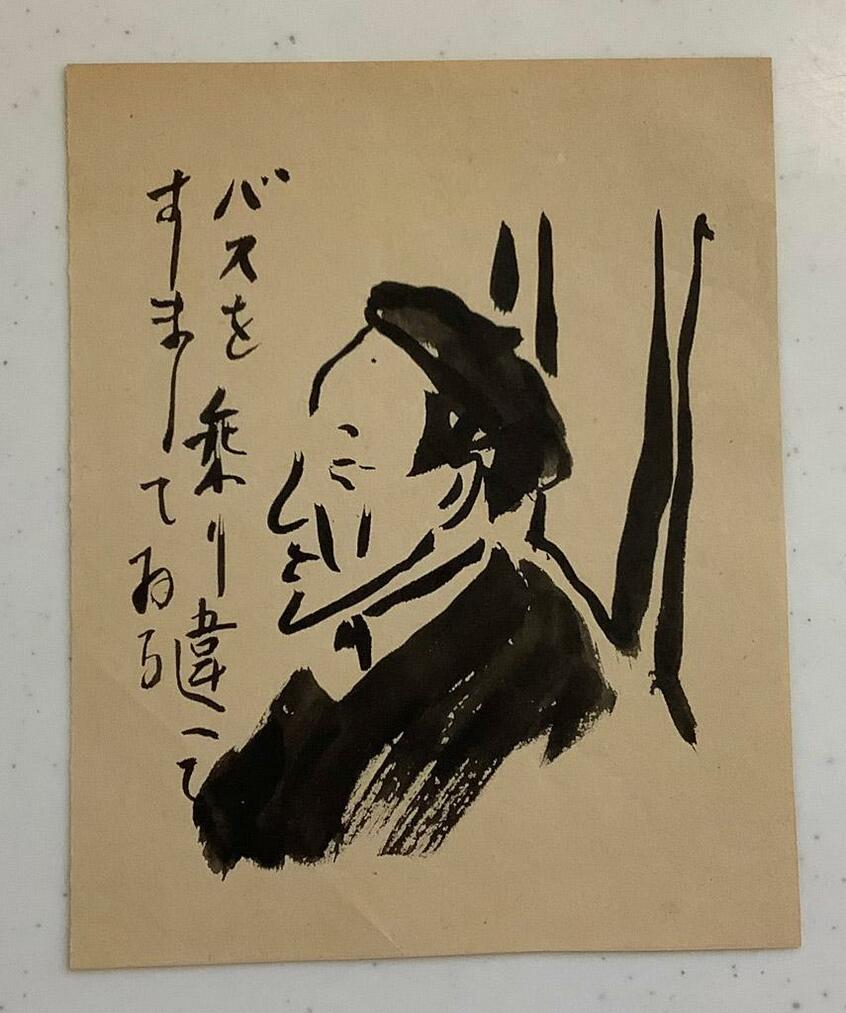 バスを乗り違へて
すましてゐる